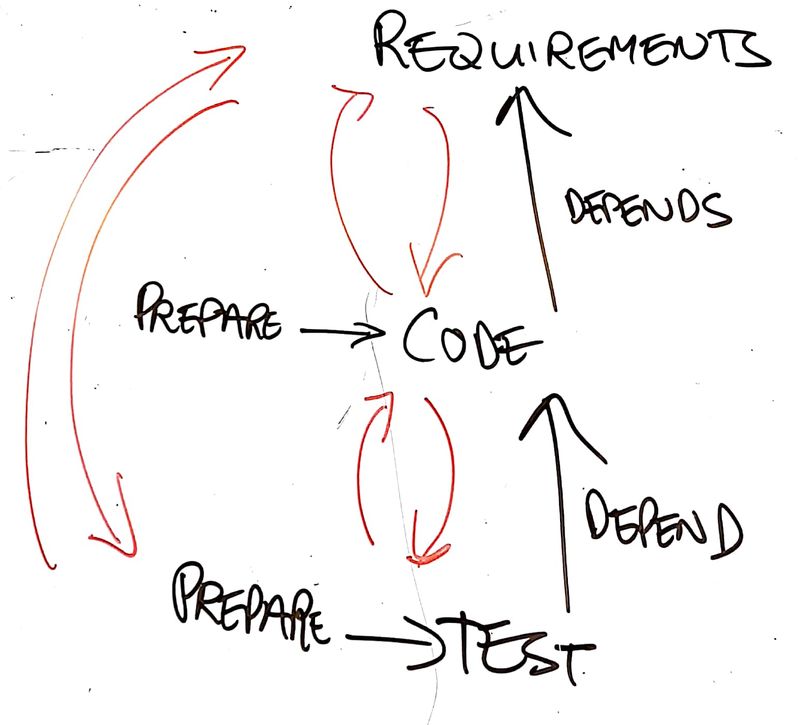 REQUIREMENTS
DEPENDS
PREPARE
CODE
DEPEND
PREPARE
TEST